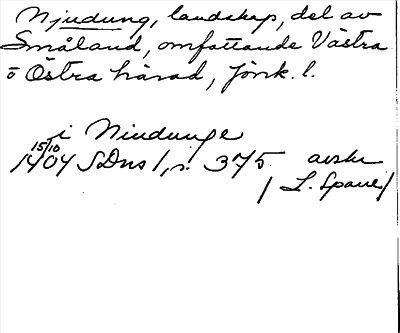 Njudung, landskap, del av
Småland, omfattande Västra
o Östra härad, Jönk. l.
i Niudunge
15/10 1404 SDns 1, s. 375 avskr
/ L. Sparre /